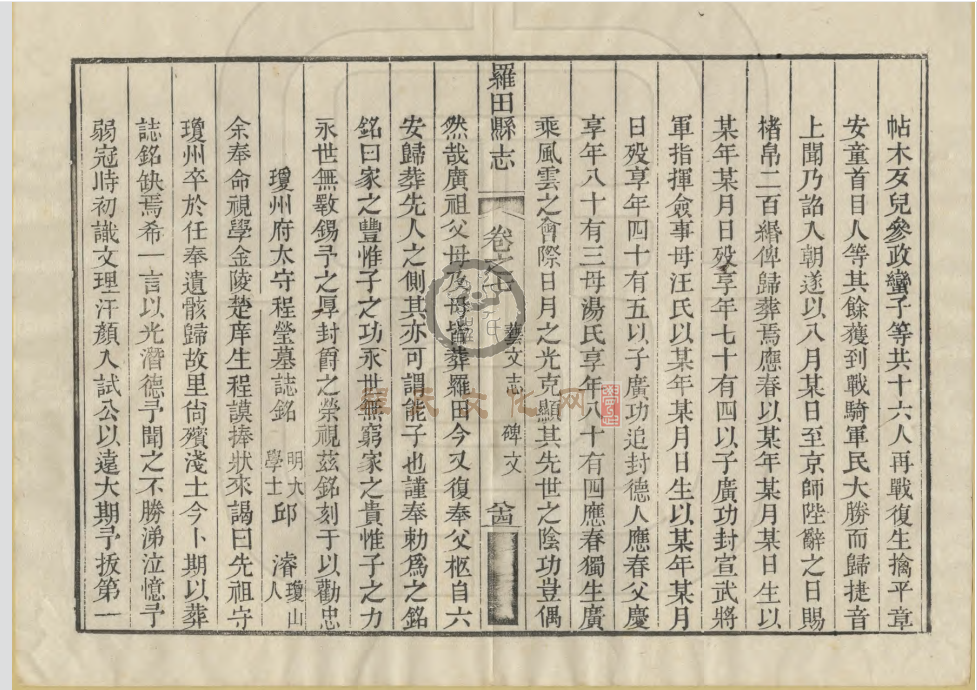 帖木歹兒參政蠻子等共十六人再戰復生擒平章
安童首目人等其餘獲到戰騎軍民大勝而歸捷音
上聞乃詔入朝遂以八月某日至京師陛辭之日賜
楮帛二百緡俾歸葬焉應春以某年某月某日生以
某年某月日歿享年七十有四以子廣功封宣武將
軍指揮僉事母汪氏以某年某月日生以某年某月
日歿享年四十有五以子廣功追封德人應春父慶
享年八十有三母湯氏享年八十有四應春獨生廣
乘風雲之會際日月之光克顯其先世之陰功豈偶
羅田縣志 卷之七 藝文志 碑文 八十四
然哉廣祖父母及母皆葬羅田今又復奉父柩自六
安歸葬先人之側其亦可謂能子也謹奉勅爲之銘
銘曰家之豐惟子之功永世無窮家之貴惟子之力
永世無斁錫予之厚封爵之榮視茲銘刻于以勸忠
瓊州府太守程瑩墓誌銘 明大學士 邱濬 瓊山人
余奉命視學金陵楚庠生程謨捧狀來謁曰先祖守
瓊州卒於任奉遺骸歸故里尙殯淺土今卜期以葬
誌銘缺焉希一言以光潛德予聞之不勝涕泣憶予
弱冠時初識文理汗顏入試公以遠大期予拔第一